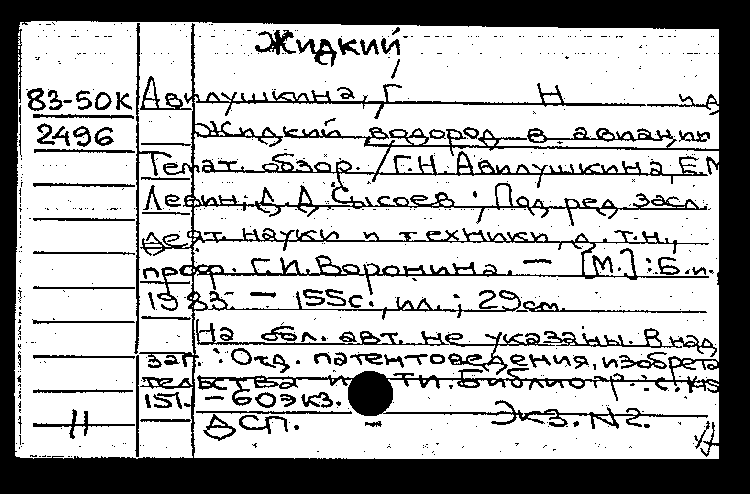 Жидкий
83-50К Авилушкина, Г Н и д
2496 Жидкий водород в авиации
Темат. обзор. / Г.Н. Авилушкина, Е.М
Левин, Д.Д Сысоев ; Под ред. засл.
деят. науки и техники, д.т.н.,
проф. Г.И. Воронина. — [М.] : Б.и.
1983. — 155с., ил. ; 29см.
На обл. авт. не указаны. В над
заг. : Отд. патентоведения, изобрета
тельства и ТИ. Библиогр : с.
151. — 60 экз.
11 ДСП. Экз. N2.